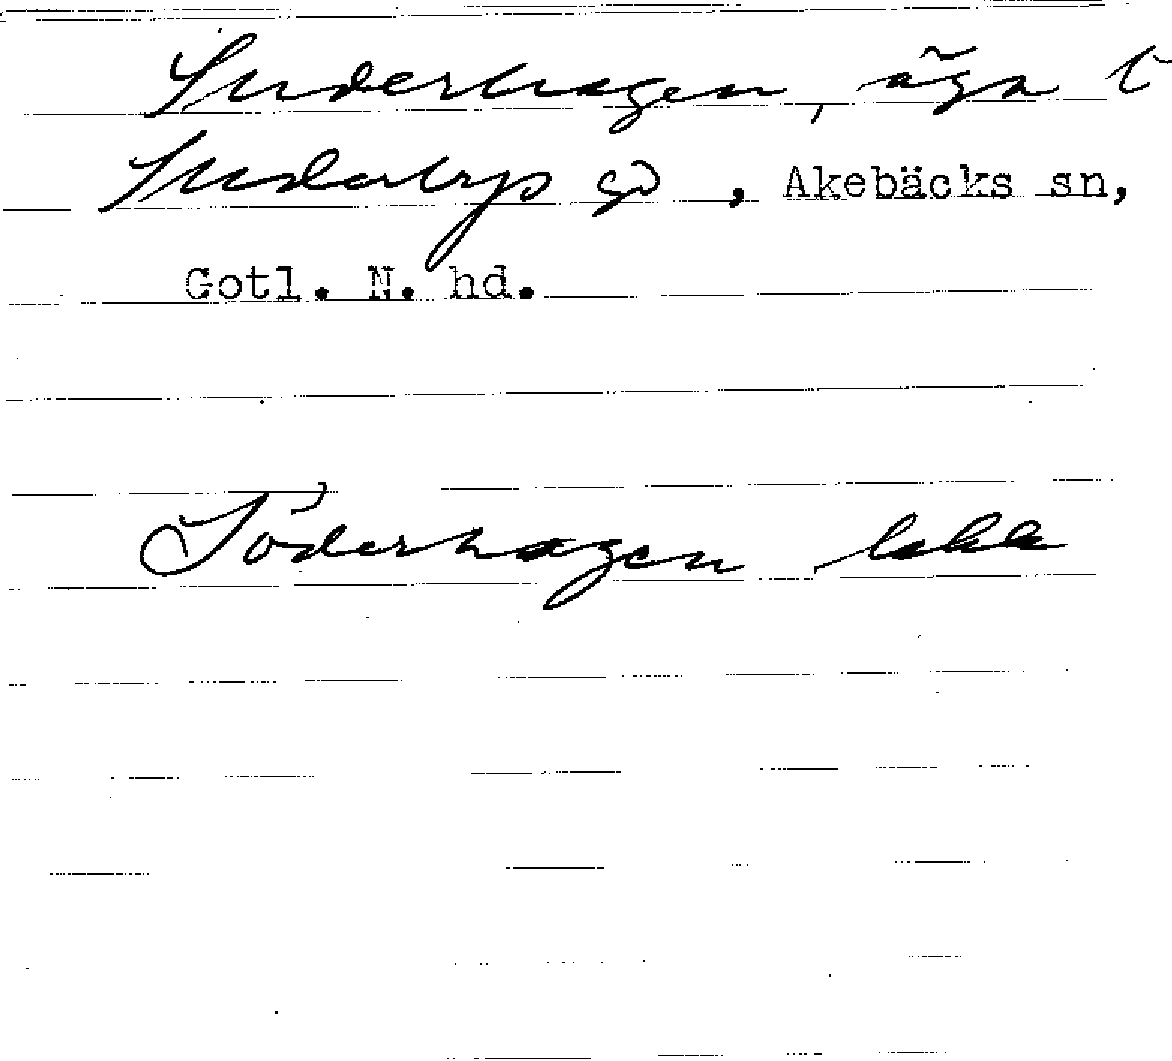 Suderhagen, äga t
Suderbys gd, Akebäcks sn,
Gotl. N. hd.
Söderhagen